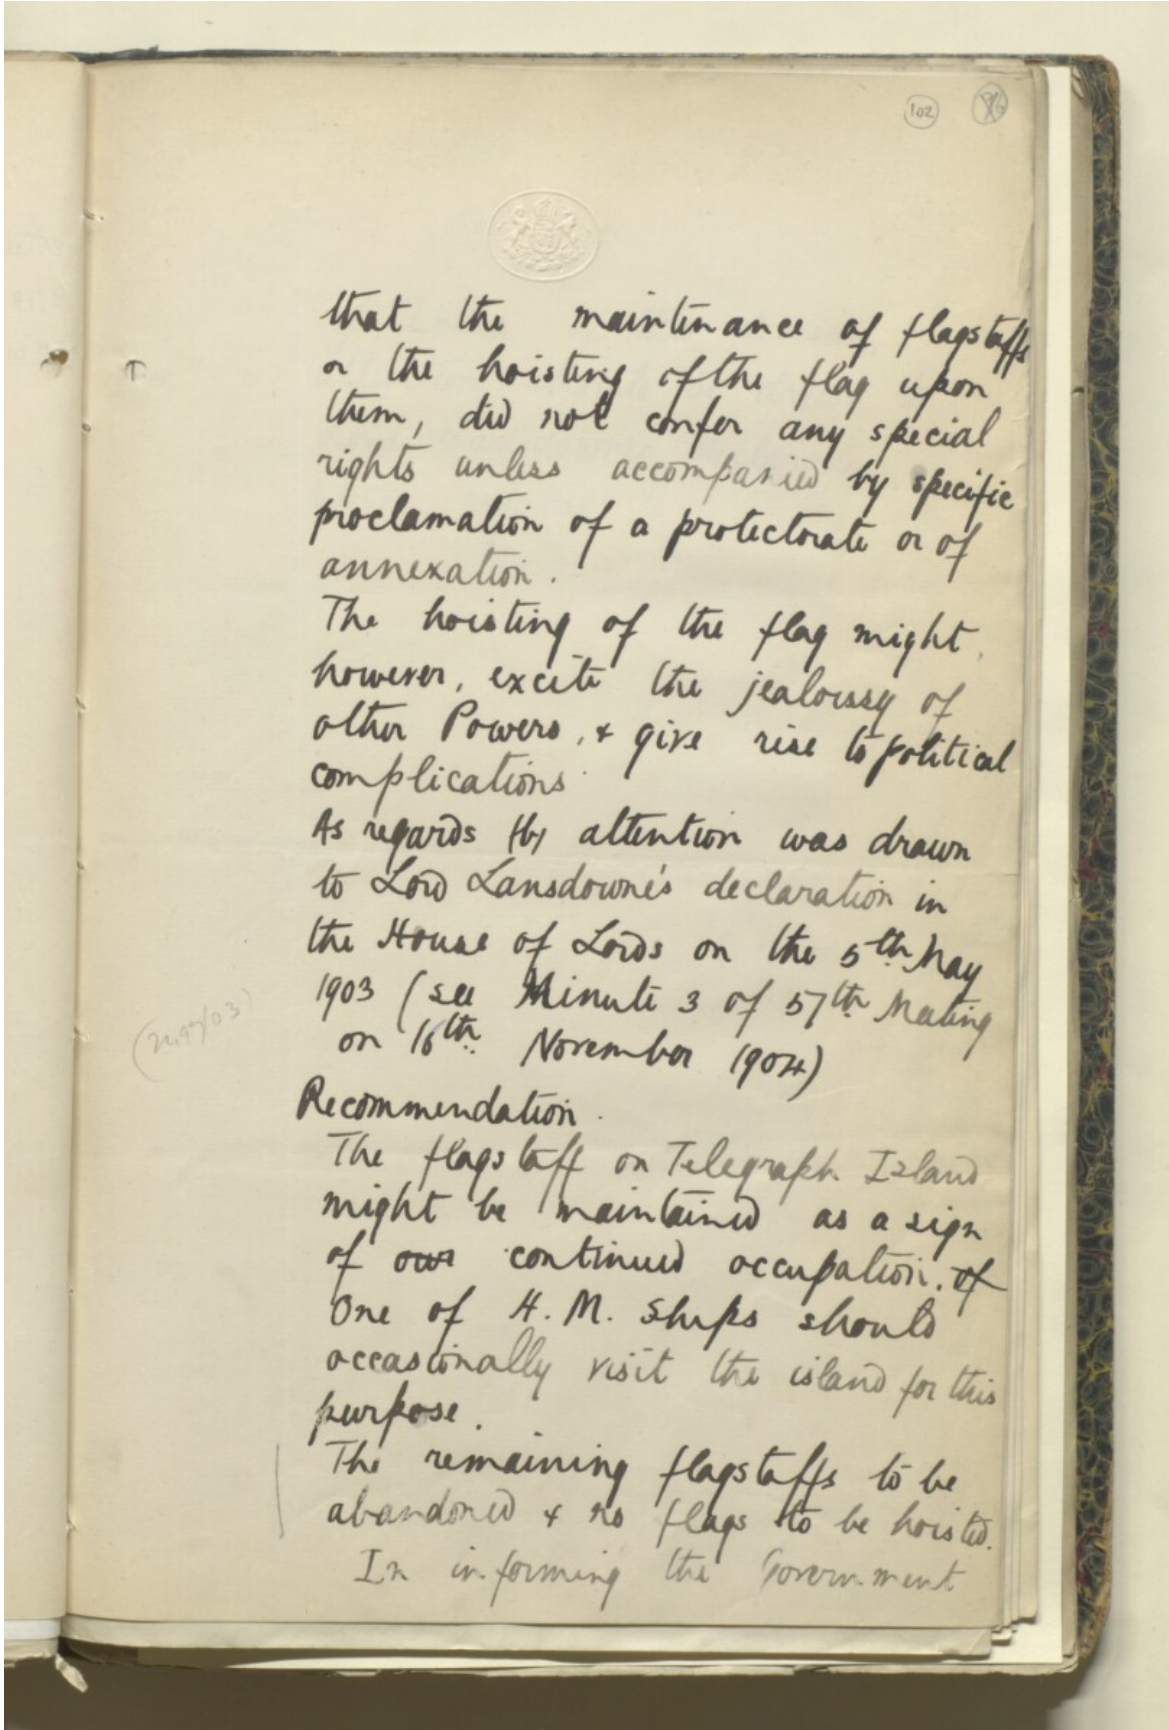 102
that the maintenance of flagstaffs
or the hoisting of the flag upon
them, did not confer any special
rights unless accompanied by specific
proclamation of a protectorate or of
annexation.
The hoisting of the flag might,
however, excite the jealousy of
other Powers, & give rise to political
complications.
As regards (b) attention was drawn
to Lord Lansdowne's declaration in
the House of Lords on the 5th May
1903 (see Minute 3 of 57th Meeting
on 16th November 1904)
Recommendation.
The flagstaff on Telegraph Island
might be maintained as a sign
of our continued occupation. of
One of H. M. Ships should
occasionally visit the island for this
purpose.
The remaining flagstaffs to be
abandoned & no flags to be hoisted.
In informing the Government